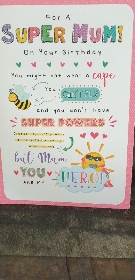 For A
SUPER MUM!
On Your Birthday
You might not wear a cape
and you don't have
SUPER POWERS
but Mum
YOU
ARE MY
HERO!